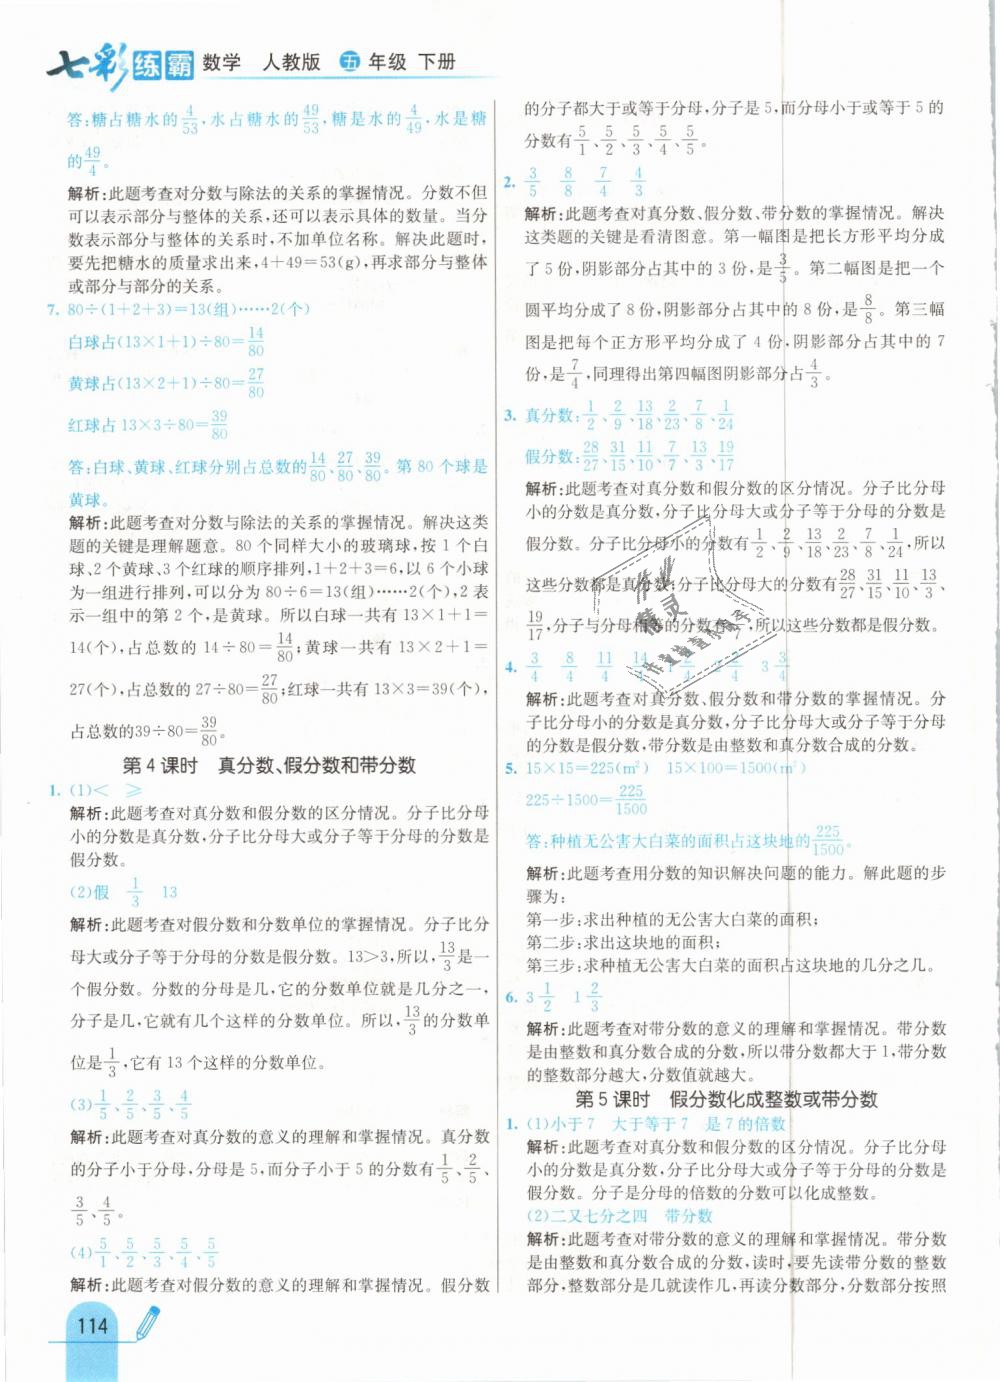 七彩练霸 数学 人教版 五年级 下册
答:糖占糖水的4/53,水占糖水的49/53,糖是水的4/49,水是糖
的49/4。
解析:此题考查对分数与除法的关系的掌握情况。分数不但
可以表示部分与整体的关系,还可以表示具体的数量。当分
数表示部分与整体的关系时,不加单位名称。解决此题时,
要先把糖水的质量求出来,4+49=53(g),再求部分与整体
或部分与部分的关系。
7. 80÷(1+2+3)=13(组)……2(个)
白球占(13×1+1)÷80=14/80
黄球占(13×2+1)÷80=27/80
红球占 13×3÷80=39/80
答:白球、黄球、红球分别占总数的14/80、27/80、39/80。第 80 个球是
黄球。
解析:此题考查对分数与除法的关系的掌握情况。解决这类
题的关键是理解题意。80 个同样大小的玻璃球,按 1 个白
球、2 个黄球、3 个红球的顺序排列,1+2+3=6,以 6 个小球
为一组进行排列,可以分为 80÷6=13(组)……2(个),2 表
示一组中的第 2 个,是黄球。所以白球一共有 13×1+1=
14(个),占总数的 14÷80=14/80;黄球一共有 13×2+1=
27(个),占总数的 27÷80=27/80;红球一共有 13×3=39(个),
占总数的39÷80=39/80。
第 4 课时 真分数、假分数和带分数
1. (1)< ≥
解析:此题考查对真分数和假分数的区分情况。分子比分母
小的分数是真分数,分子比分母大或分子等于分母的分数是
假分数。
(2)假 1/3 13
解析:此题考查对假分数和分数单位的掌握情况。分子比分
母大或分子等于分母的分数是假分数。13>3,所以,13/3是一
个假分数。分数的分母是几,它的分数单位就是几分之一,
分子是几,它就有几个这样的分数单位。所以,13/3的分数单
位是1/3,它有 13 个这样的分数单位。
(3)1/5、2/5、3/5、4/5
解析:此题考查对真分数的意义的理解和掌握情况。真分数
的分子小于分母,分母是 5,而分子小于 5 的分数有1/5、2/5、
3/5、4/5。
(4)5/1、5/2、5/3、5/4、5/5
解析:此题考查对假分数的意义的理解和掌握情况。假分数
114
的分子都大于或等于分母,分子是 5,而分母小于或等于 5 的
分数有5/1、5/2、5/3、5/4、5/5。
2. 3/5 8/8 7/4 4/3
解析:此题考查对真分数、假分数、带分数的掌握情况。解决
这类题的关键是看清图意。第一幅图是把长方形平均分成
了 5 份,阴影部分占其中的 3 份,是3/5。第二幅图是把一个
圆平均分成了 8 份,阴影部分占其中的 8 份,是8/8。第三幅
图是把每个正方形平均分成了 4 份,阴影部分占其中的 7
份,是7/4,同理得出第四幅图阴影部分占4/3。
3. 真分数:1/2、2/9、13/18、2/23、7/8、1/24
假分数:28/27、31/15、11/10、7/7、13/3、19/17
解析:此题考查对真分数和假分数的区分情况。分子比分母
小的分数是真分数,分子比分母大或分子等于分母的分数是
假分数。分子比分母小的分数有1/2、2/9、13/18、2/23、7/8、1/24,所以
这些分数都是真分数;分子比分母大的分数有28/27、31/15、11/10、13/3、
19/17,分子与分母相等的分数有,所以这些分数都是假分数。
4. 3/4 8/4 11/4 14/4 3 3/4
解析:此题考查对真分数、假分数和带分数的掌握情况。分
子比分母小的分数是真分数,分子比分母大或分子等于分母
的分数是假分数,带分数是由整数和真分数合成的分数。
5. 15×15=225(m²) 15×100=1500(m²)
225÷1500=225/1500
答:种植无公害大白菜的面积占这块地的225/1500。
解析:此题考查用分数的知识解决问题的能力。解此题的步
骤为:
第一步:求出种植的无公害大白菜的面积;
第二步:求出这块地的面积;
第三步:求种植无公害大白菜的面积占这块地的几分之几。
6. 3 1/2 1 2/3
解析:此题考查对带分数的意义的理解和掌握情况。带分数
是由整数和真分数合成的分数,所以带分数都大于 1,带分数
的整数部分越大,分数值就越大。
第 5 课时 假分数化成整数或带分数
1. (1)小于7 大于等于7 是 7 的倍数
解析:此题考查对真分数和假分数的区分情况。分子比分母
小的分数是真分数,分子比分母大或分子等于分母的分数是
假分数。分子是分母的倍数的分数可以化成整数。
(2)二又七分之四 带分数
解析:此题考查对带分数的意义的理解和掌握情况。带分数
是由整数和真分数合成的分数,读时,要先读带分数的整数
部分,整数部分是几就读作几,再读分数部分,分数部分按照